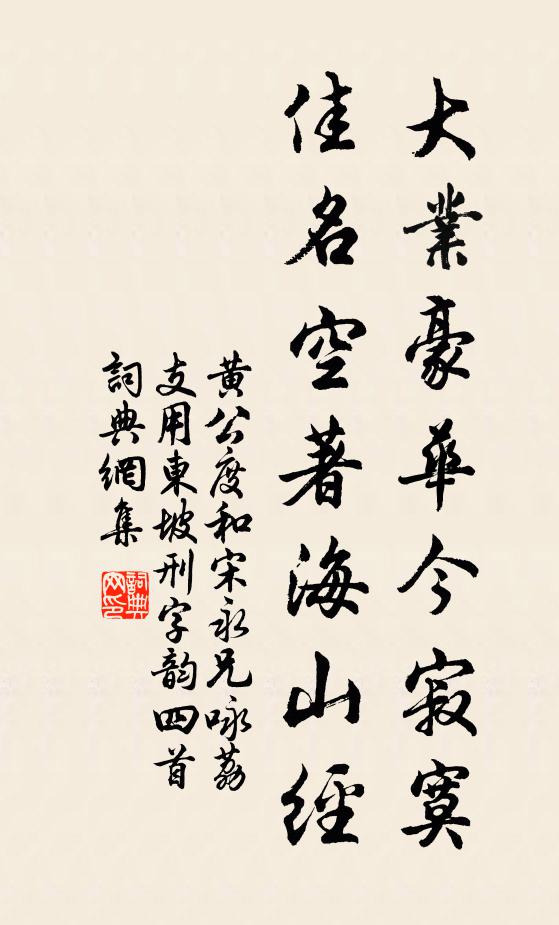 大業豪華今寂寞
佳名空著海山經
黄公度和宋永兄咏荔
支用東坡刑字韵四首
詞典網集
詞典网印